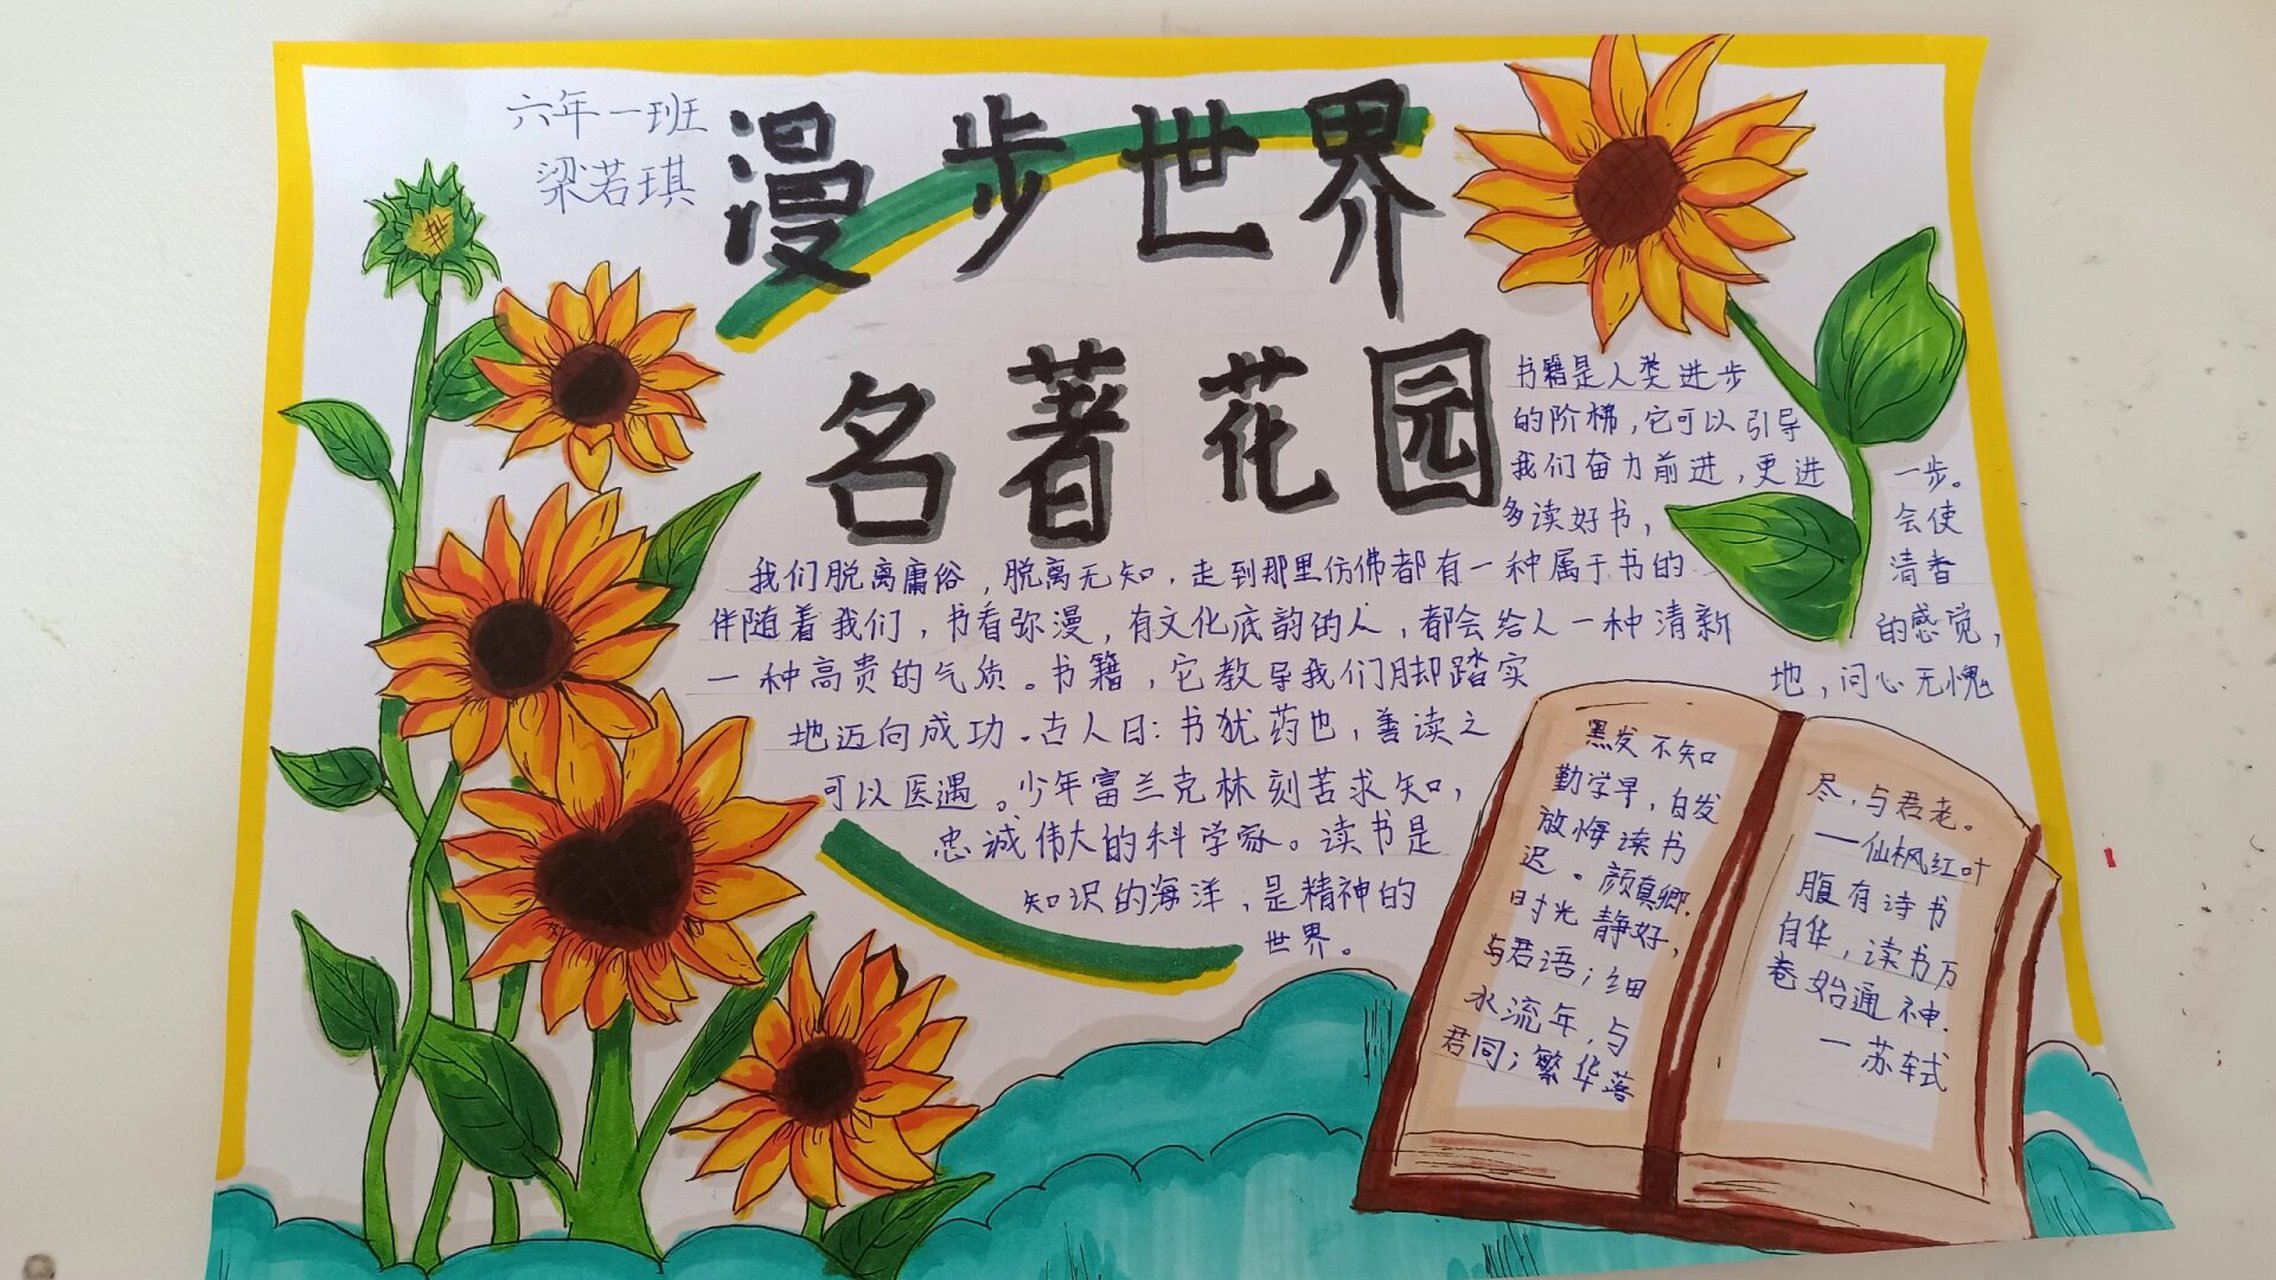 六年一班
梁若琪
漫步世界
名著花园
书籍是人类进步
的阶梯，它可以引导
我们奋力前进，更进一步。
多读好书，会使
我们脱离庸俗，脱离无知，走到那里仿佛都有一种属于书的清香
伴随着我们，书香弥漫，有文化底韵的人，都会给人一种清新的感觉，
一种高贵的气质。书籍，它教导我们脚踏实地，问心无愧
地迈向成功。古人曰：书犹药也，善读之
可以医遇。少年富兰克林刻苦求知，
忠诚伟大的科学家。读书是
知识的海洋，是精神的
世界。
黑发不知
勤学早，白发
放悔读书
迟。颜真卿.
时光静好，
与君语；细
水流年，与
君同；繁华落
尽，与君老。
——仙枫红叶
腹有诗书
自华，读书万
卷始通神.
—苏轼